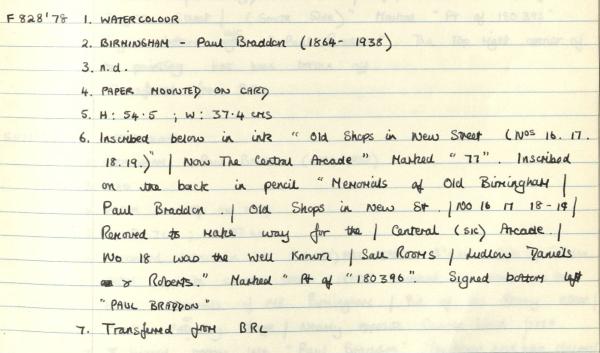 F 828'78 1. WATERCOLOUR
2. BIRMINGHAM - Paul Braddon (1864-1938)
3. n.d.
4. PAPER MOUNTED ON CARD
5. H: 54.5 ; W: 37.4 cms
6. Inscribed below in ink "Old Shops in New Street (Nos 16. 17.
18. 19.)" | Now The Central Arcade" Marked "77". Inscribed
on the back in pencil "Memorials of Old Birmingham |
Paul Braddon. | Old Shops in New St. | No 16 17 18-19 |
Removed to make way for the | Centeral (SIC) Arcade. |
No 18 was the well known | Sale Rooms | Ludlow Daniels
& Roberts." Marked "Pt of "180396". Signed bottom left
"PAUL BRADDON"
7. Transferred from BRL